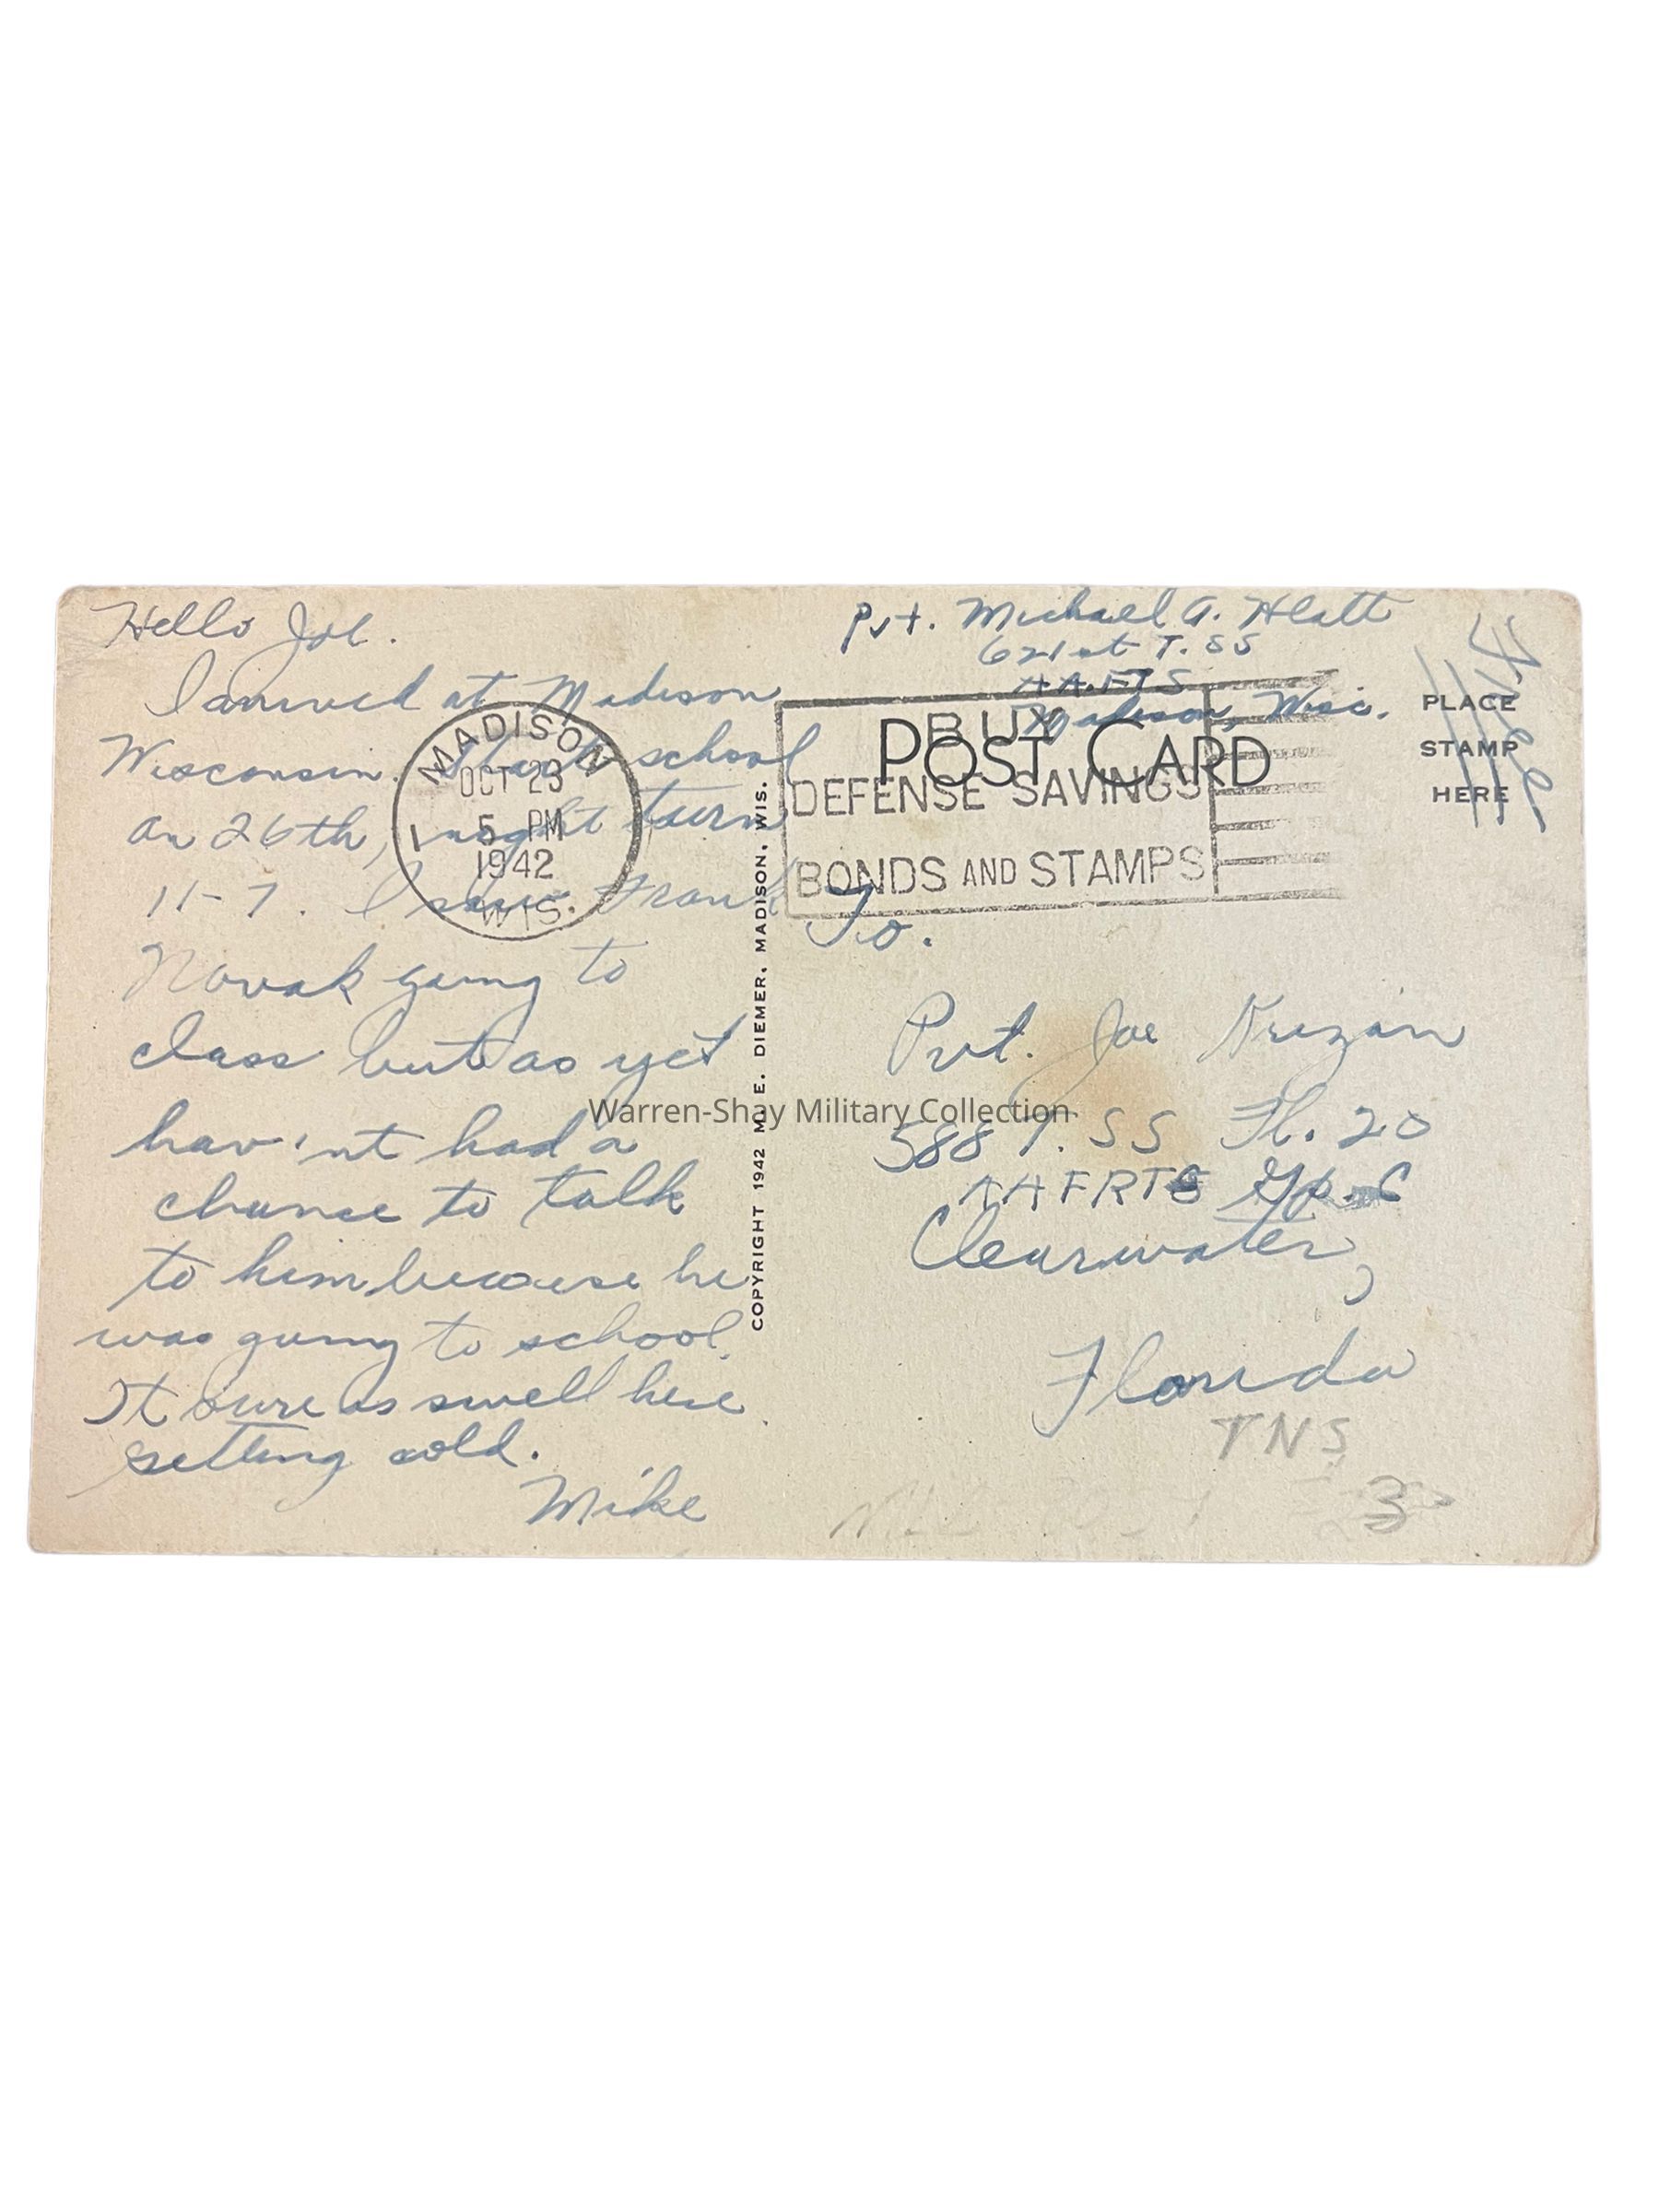 Hello Joe.
I arrived at Madison
Wisconsin. Start school
on 26th, night turn
11-7. I saw Frank
Novak going to
class but as yet
hav'nt had a
chance to talk
to him because he
was going to school.
It sure is swell here
getting cold.
Mike
MADISON
OCT 23
5 PM
1942
WIS.
1
COPYRIGHT 1942 M. E. DIEMER, MADISON, WIS.
Pvt. Michael A. Hlatt
621st T.SS
AAFTS
Madison, Wisc.
POST CARD
BUY
DEFENSE SAVINGS
BONDS AND STAMPS
Free
PLACE
STAMP
HERE
To.
Pvt. Joe Krizan
588 T.SS Fl. 20
AAFRTC Gp. C
Clearwater,
Florida
TNS
3
Warren-Shay Military Collection